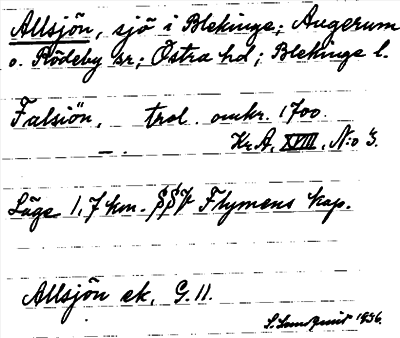 Allsjön, sjö i Blekinge; Augerum
o. Rödeby sr; Östra hd; Blekinge l.
Falsiön, trol. omkr. 1700.
— " — Kr.A, XVIII, N:o 3.
Läge 1,7 km. SSV Flymens kap.
Allsjön ek, G.11.
S. Landqvist 1936.